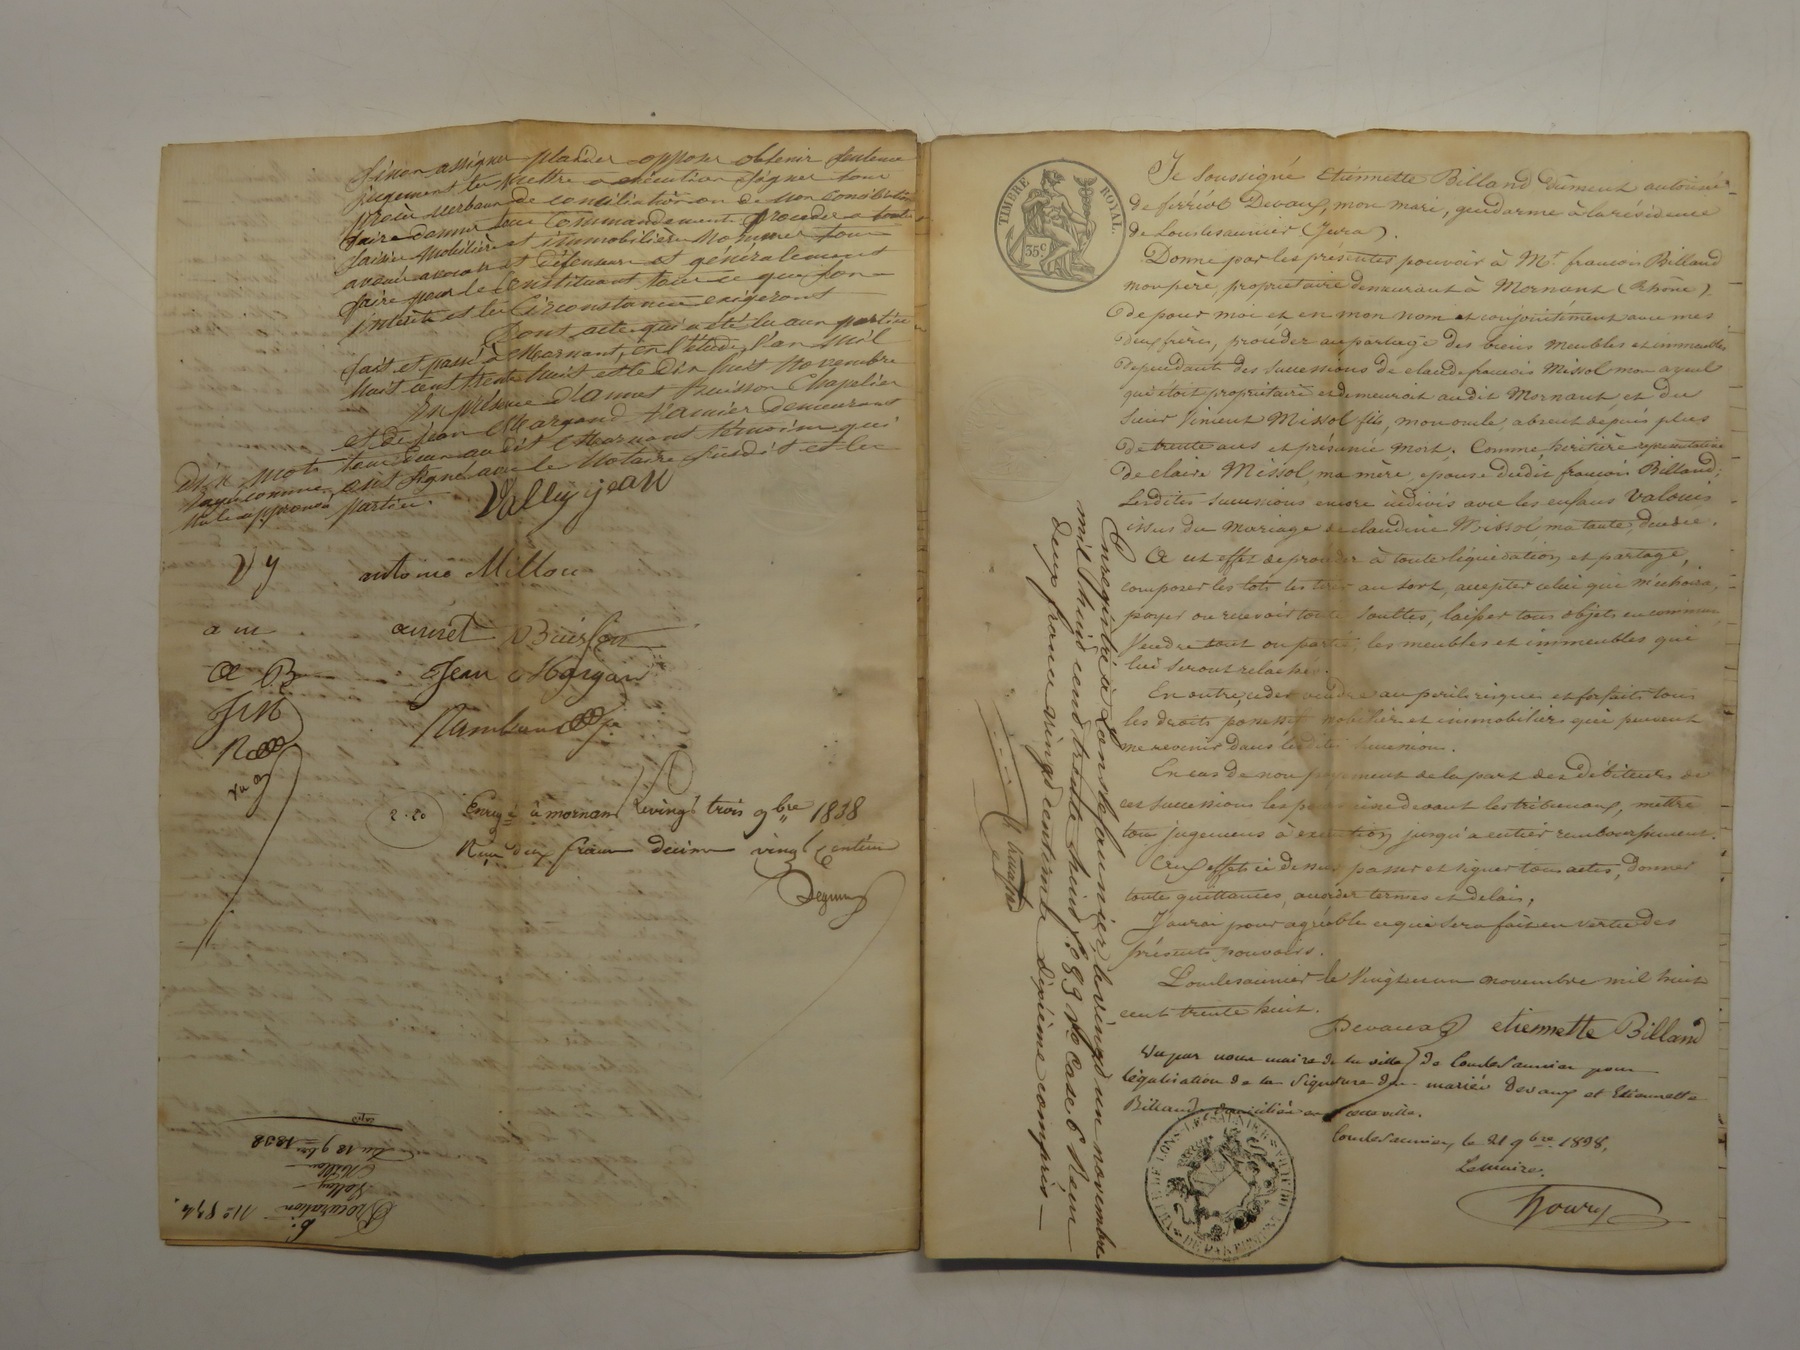 Sinon assigner plaider opposer obtenir sentence
jugement les mettre a exécution signer tous
procès verbaux de conciliation ou de non conciliation
faire donner tous commandement procéder a toute
saisie mobilière et immobilière nommer tous
avoués avocats et défenseurs et généralement
faire pour le Constituant tout ce que son
intérêt et les Circonstances exigeront
Dont acte qui a été lu aux parties
fait et passé à Mornant, en l'étude, l'an Mil
huit cent trente huit et le dix huit Novembre
En présence d'amet Buisson Chapelier
et de Jean Margand demeurant
tous deux audit Mornant témoins qui
ont signé avec le Notaire susdit et les
parties.
mots
rayés comme
nuls approuvés
Valley jean
V y
antoine Millou
a m
Buisson
a B
Jean Margan
J M
2.20
Enreg.é à mornant le vingt trois 9bre 1838
Reçu deux francs decime vingt Centim
6.
N° 874.
Procuration
Valley
Millou
du 18 9bre 1838
TIMBRE ROYAL.
35c
Je Soussigné etiennette Billand dûment autorisée
de ferréol Devaux, mon mari, gendarme à la résidence
de Lonslesaunier (Jura).
Donne par les présentes pouvoir à Mr. francois Billand
mon père, propriétaire demeurant à Mornant (Rhône)
de pour moi et en mon nom et conjointement avec mes
deux frères, procéder au partage des biens meubles et immeubles
dépendants des successions de claude francois Missol mon ayeul
qui étoit propriétaire et demeuroit audit Mornant et du
sieur Vincent Missol fils, mon oncle, absent depuis plus
de trente ans et présumé mort. Comme héritière représentative
de claire Missol, ma mère, epouse dudit francois Billand;
Lesdites successions encore indivis avec les enfans Valouis
issus du mariage de claudine Missol ma tante, décédée.
A cet effet de procéder à toute liquidation et partage,
composer les lots les tirer au sort, accepter celui qui m'echoira,
payer ou recevoir toute soultes, laisser tous objets en commun,
Vendre tout ou partie, les meubles et immeubles qui
lui seront relachés.
En outre, céder vendre au peril risques et forfaits tous
les droits mobilier et immobiliers qui peuvent
me revenir dans lesdites successions.
En cas de non payement de la part des débiteurs de
ces successions les poursuivre devant les tribunaux, mettre
tous jugemens à exécution jusqu'a entier remboursement.
Aux effets ci dessus passer et signer tous actes, donner
toute quittances, accorder termes et délais;
J'aurai pour agréable ce qui sera fait en vertu des
présents pouvoirs.
Lonslesaunier le Vingt un novembre mil huit
cent trente huit.
Devaux etiennette Billand
Vu par nous maire de la ville de Lonslesaunier pour
légalisation de la signature des mariés Devaux et Etiennette
Billand, domiciliés en cette ville.
Lonslesaunier, le 21 9bre 1838,
Le maire.
VILLE DE LONS-LE-SAUNIER
Enregistré à Lons le saunier le vingt un novembre
mil huit cent trente huit f° 89 v° case 6 Reçu
deux francs vingt centimes dixième compris